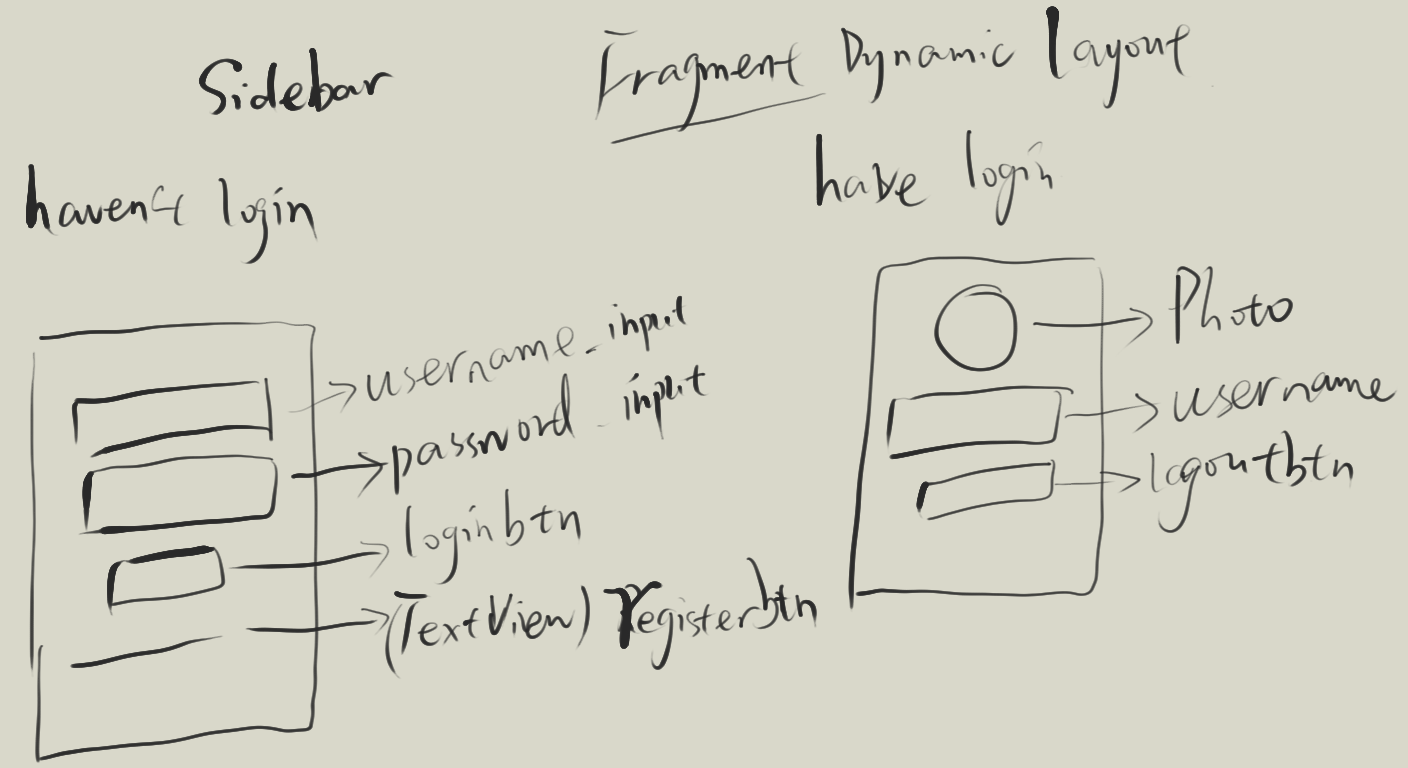 Sidebar
Fragment Dynamic layout
haven't login
have login
username_input
password_input
loginbtn
(TextView) Registerbtn
Photo
username
logoutbtn